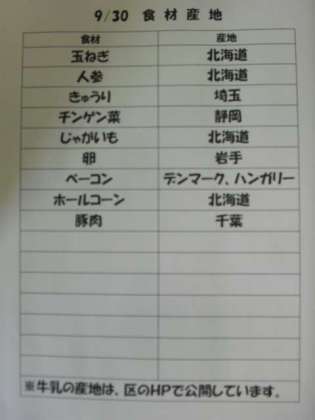 9/30 食材産地
食材 産地
玉ねぎ 北海道
人参 北海道
きゅうり 埼玉
チンゲン菜 静岡
じゃがいも 北海道
卵 岩手
ベーコン デンマーク、ハンガリー
ホールコーン 北海道
豚肉 千葉
※牛乳の産地は、区のHPで公開しています。